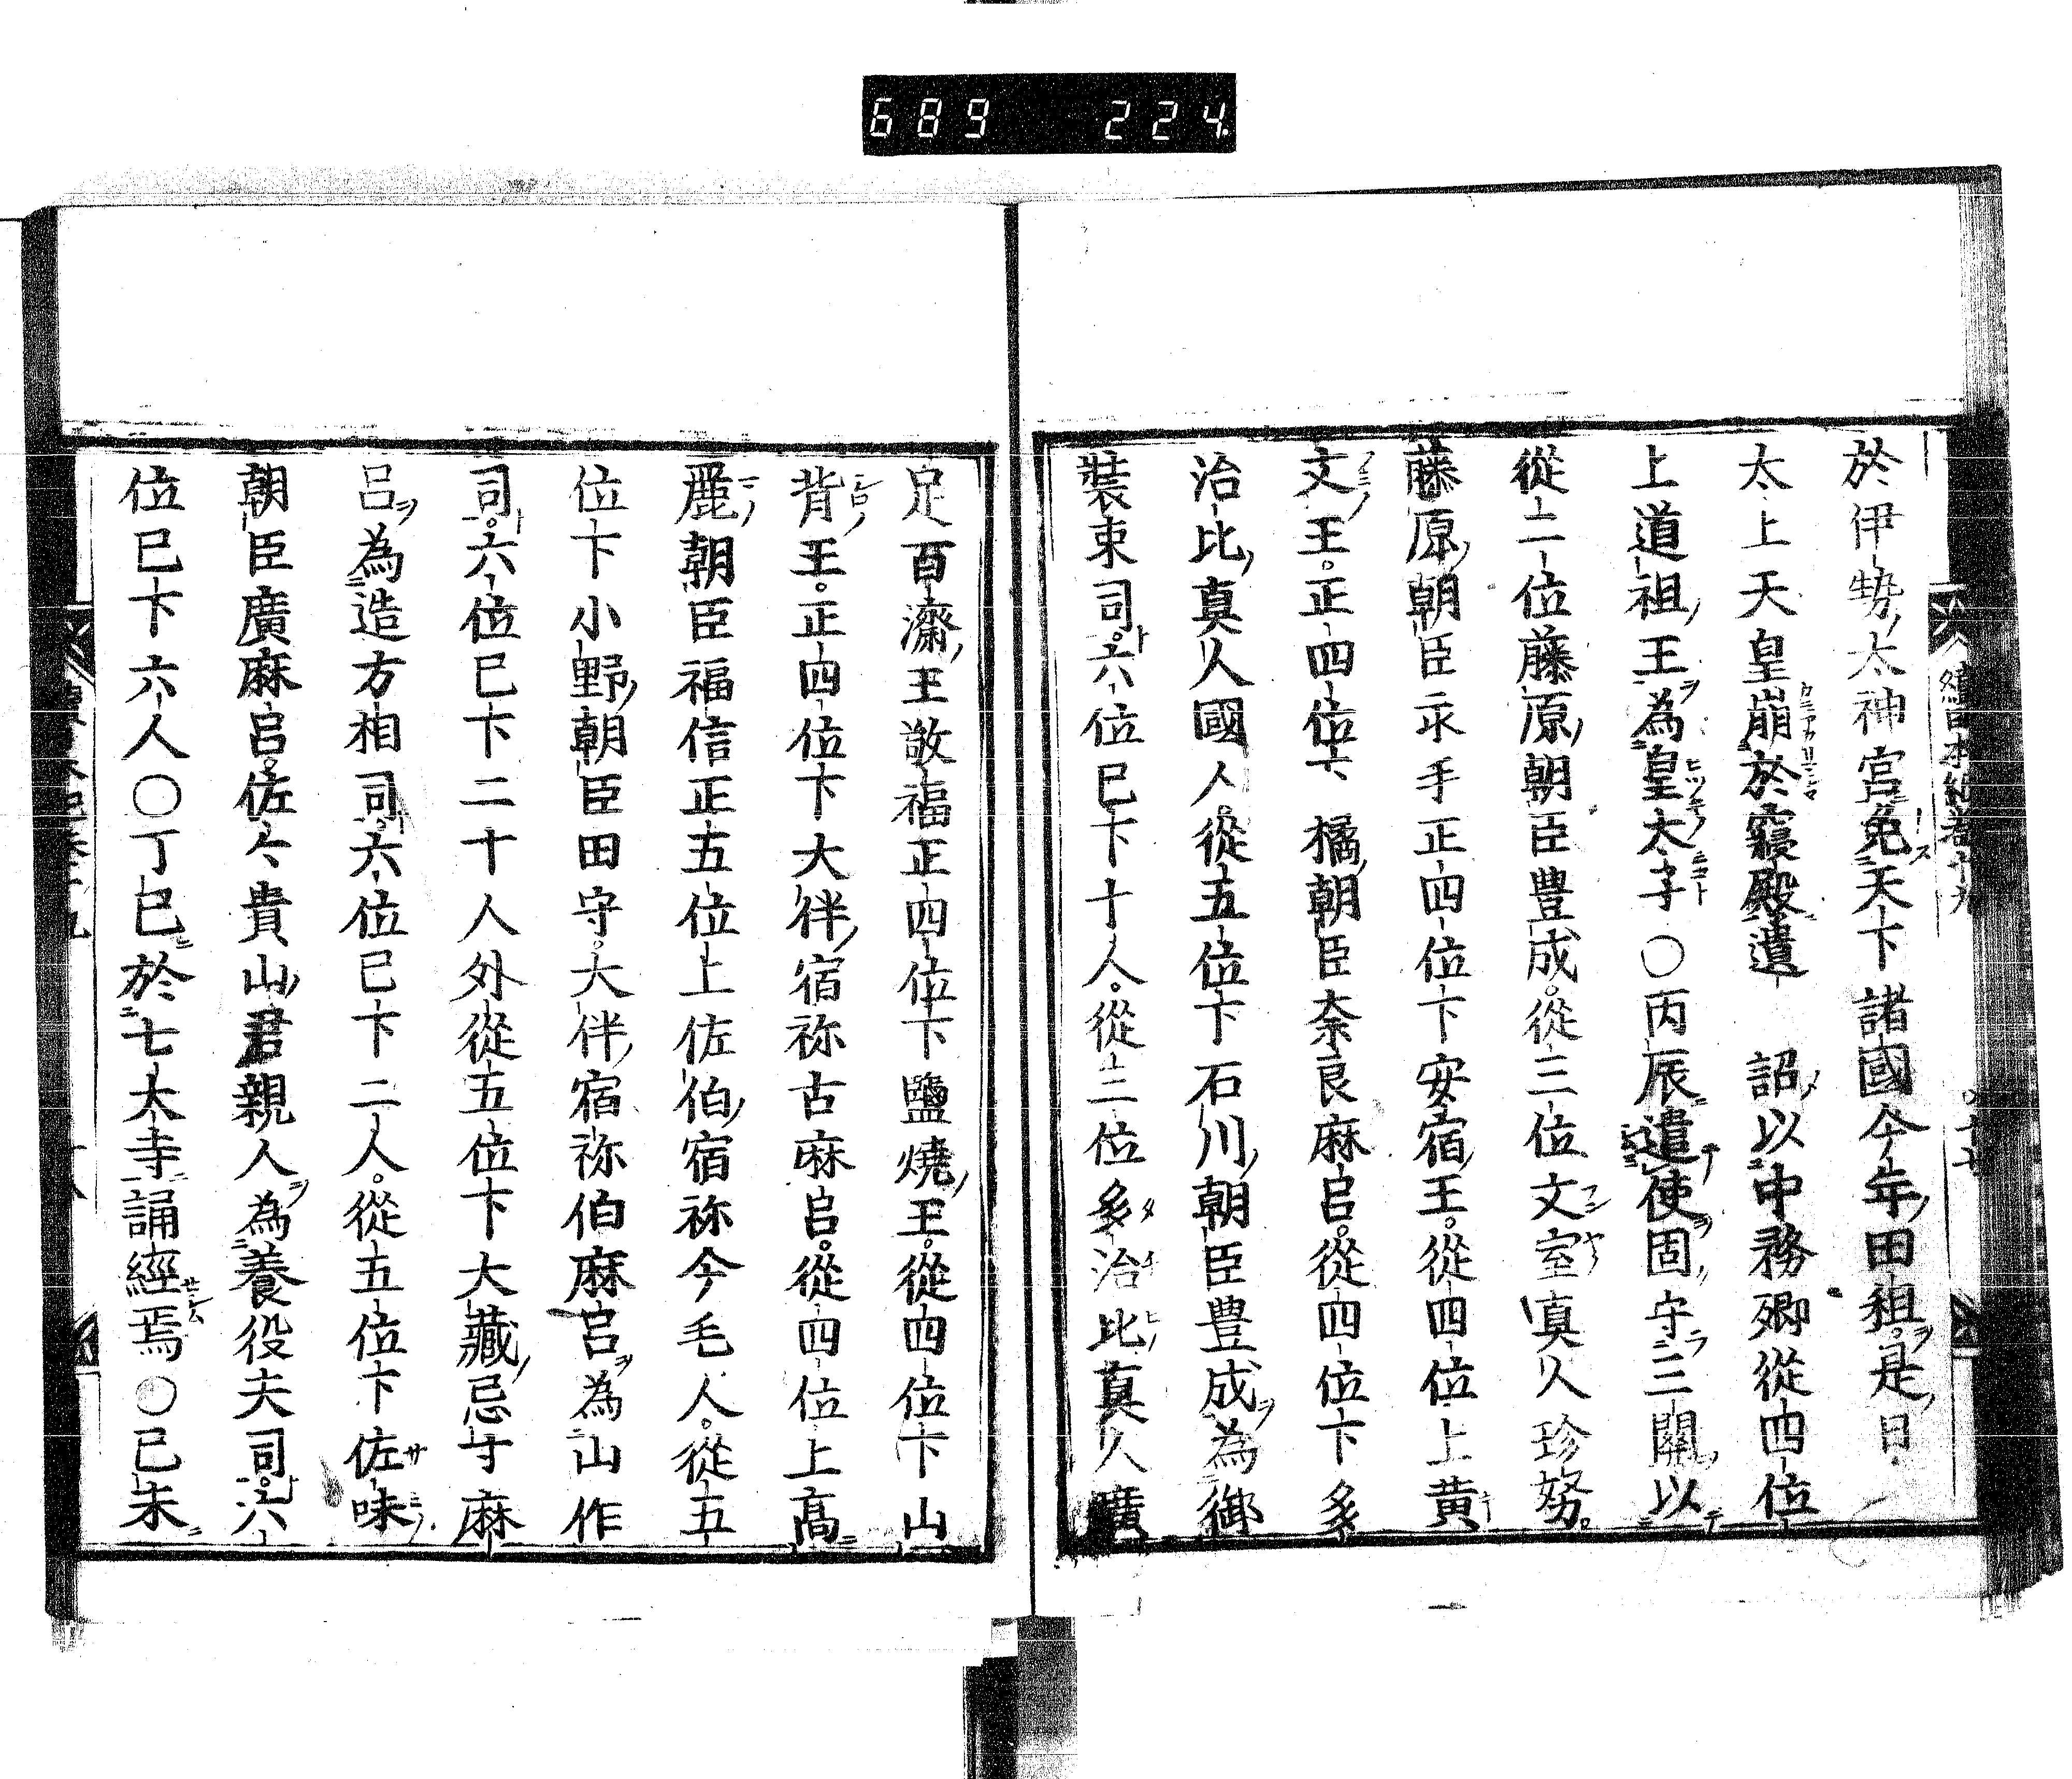 689 224
續日本紀卷十九
於伊勢太神宮免天下諸國今年田租是日
太上天皇崩於寢殿遺 詔以中務卿從四位
上道祖王為皇太子〇丙辰遣使固守三關以
從二位藤原朝臣豊成從三位文室真人珍努
藤原朝臣永手正四位下安宿王從四位上黃
文王正四位下橘朝臣奈良麻呂從四位下多
治比真人國人從五位下石川朝臣豊成為御
裝束司六位已下十人從三位多治比真人廣
足百濟王敬福正四位下鹽燒王從四位下山
背王正四位下大伴宿祢古麻呂從四位上高
麗朝臣福信正五位上佐伯宿祢今毛人從五
位下小野朝臣田守大伴宿祢伯麻呂為山作
司六位已下二十人外從五位下大藏忌寸麻
呂為造方相司六位已下二人從五位下佐味
朝臣廣麻呂佐々貴山君親人為養役夫司六
位已下六人〇丁巳於七大寺誦經焉〇己未